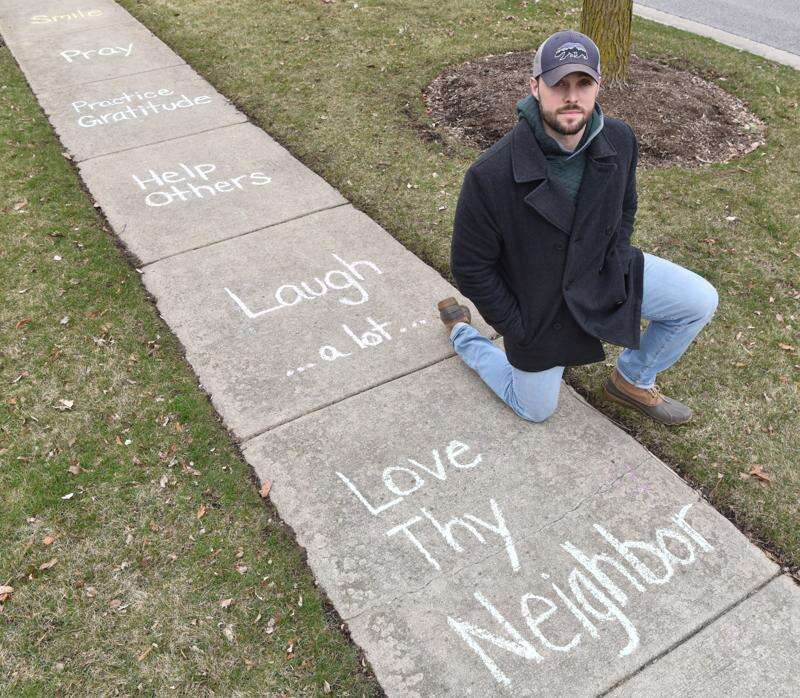 Smile
Pray
Practice
Gratitude
Help
Others
Laugh
...a lot...
Love
Thy
Neighbor